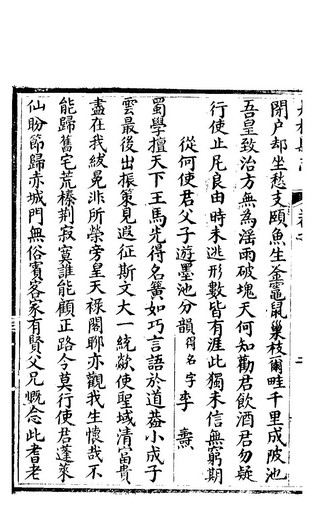 閉户却坐愁支頤魚生釜竈鼠巢枝爾畦千里成陂池
吾皇致治方無為滛雨破塊天何知勸君飲酒君勿疑
行使止尼良由時未逃形數皆有涯此獨未信無窮期
從何使君父子遊墨池分韻得名字 李燾
蜀學擅天下王馬先得名簧如巧言語於道葢小成子
雲最後出振策見遐征斯文大一統歘使聖域清富貴
盡在我紱冕非所榮旁皇天禄閣聊亦觀我生懷哉不
能歸舊宅荒榛荆寂寞誰能顧正路今莫行使君蓬萊
仙盼節歸赤城門無俗賓客家有賢父兄慨念此耆老